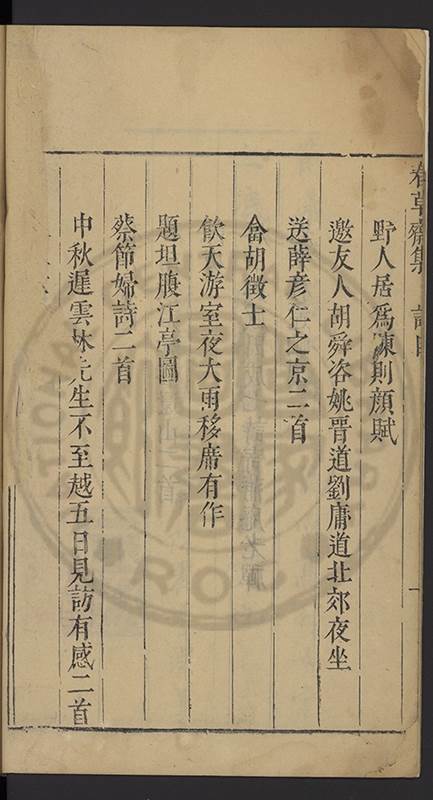 春草齋集 詩目 一
野人居爲陳則顏賦
邀友人胡舜咨姚晋道劉庸道北郊夜坐
送薛彦仁之京二首
畣胡徵士
飲天游室夜大雨移席有作
題坦腹江亭圖
蔡節婦詩二首
中秋遲雲林先生不至越五日見訪有感二首